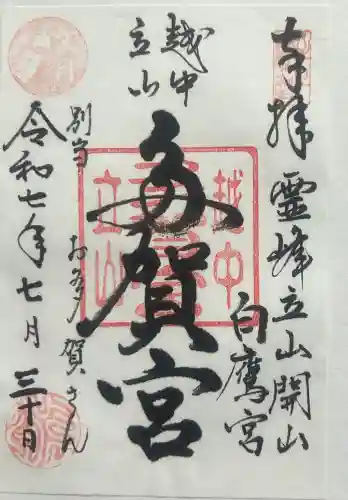 奉拝 霊峰立山開山
白鷹宮
越中
立山
多賀宮
越中
立山
別当 お多賀さん
令和七年七月三十日